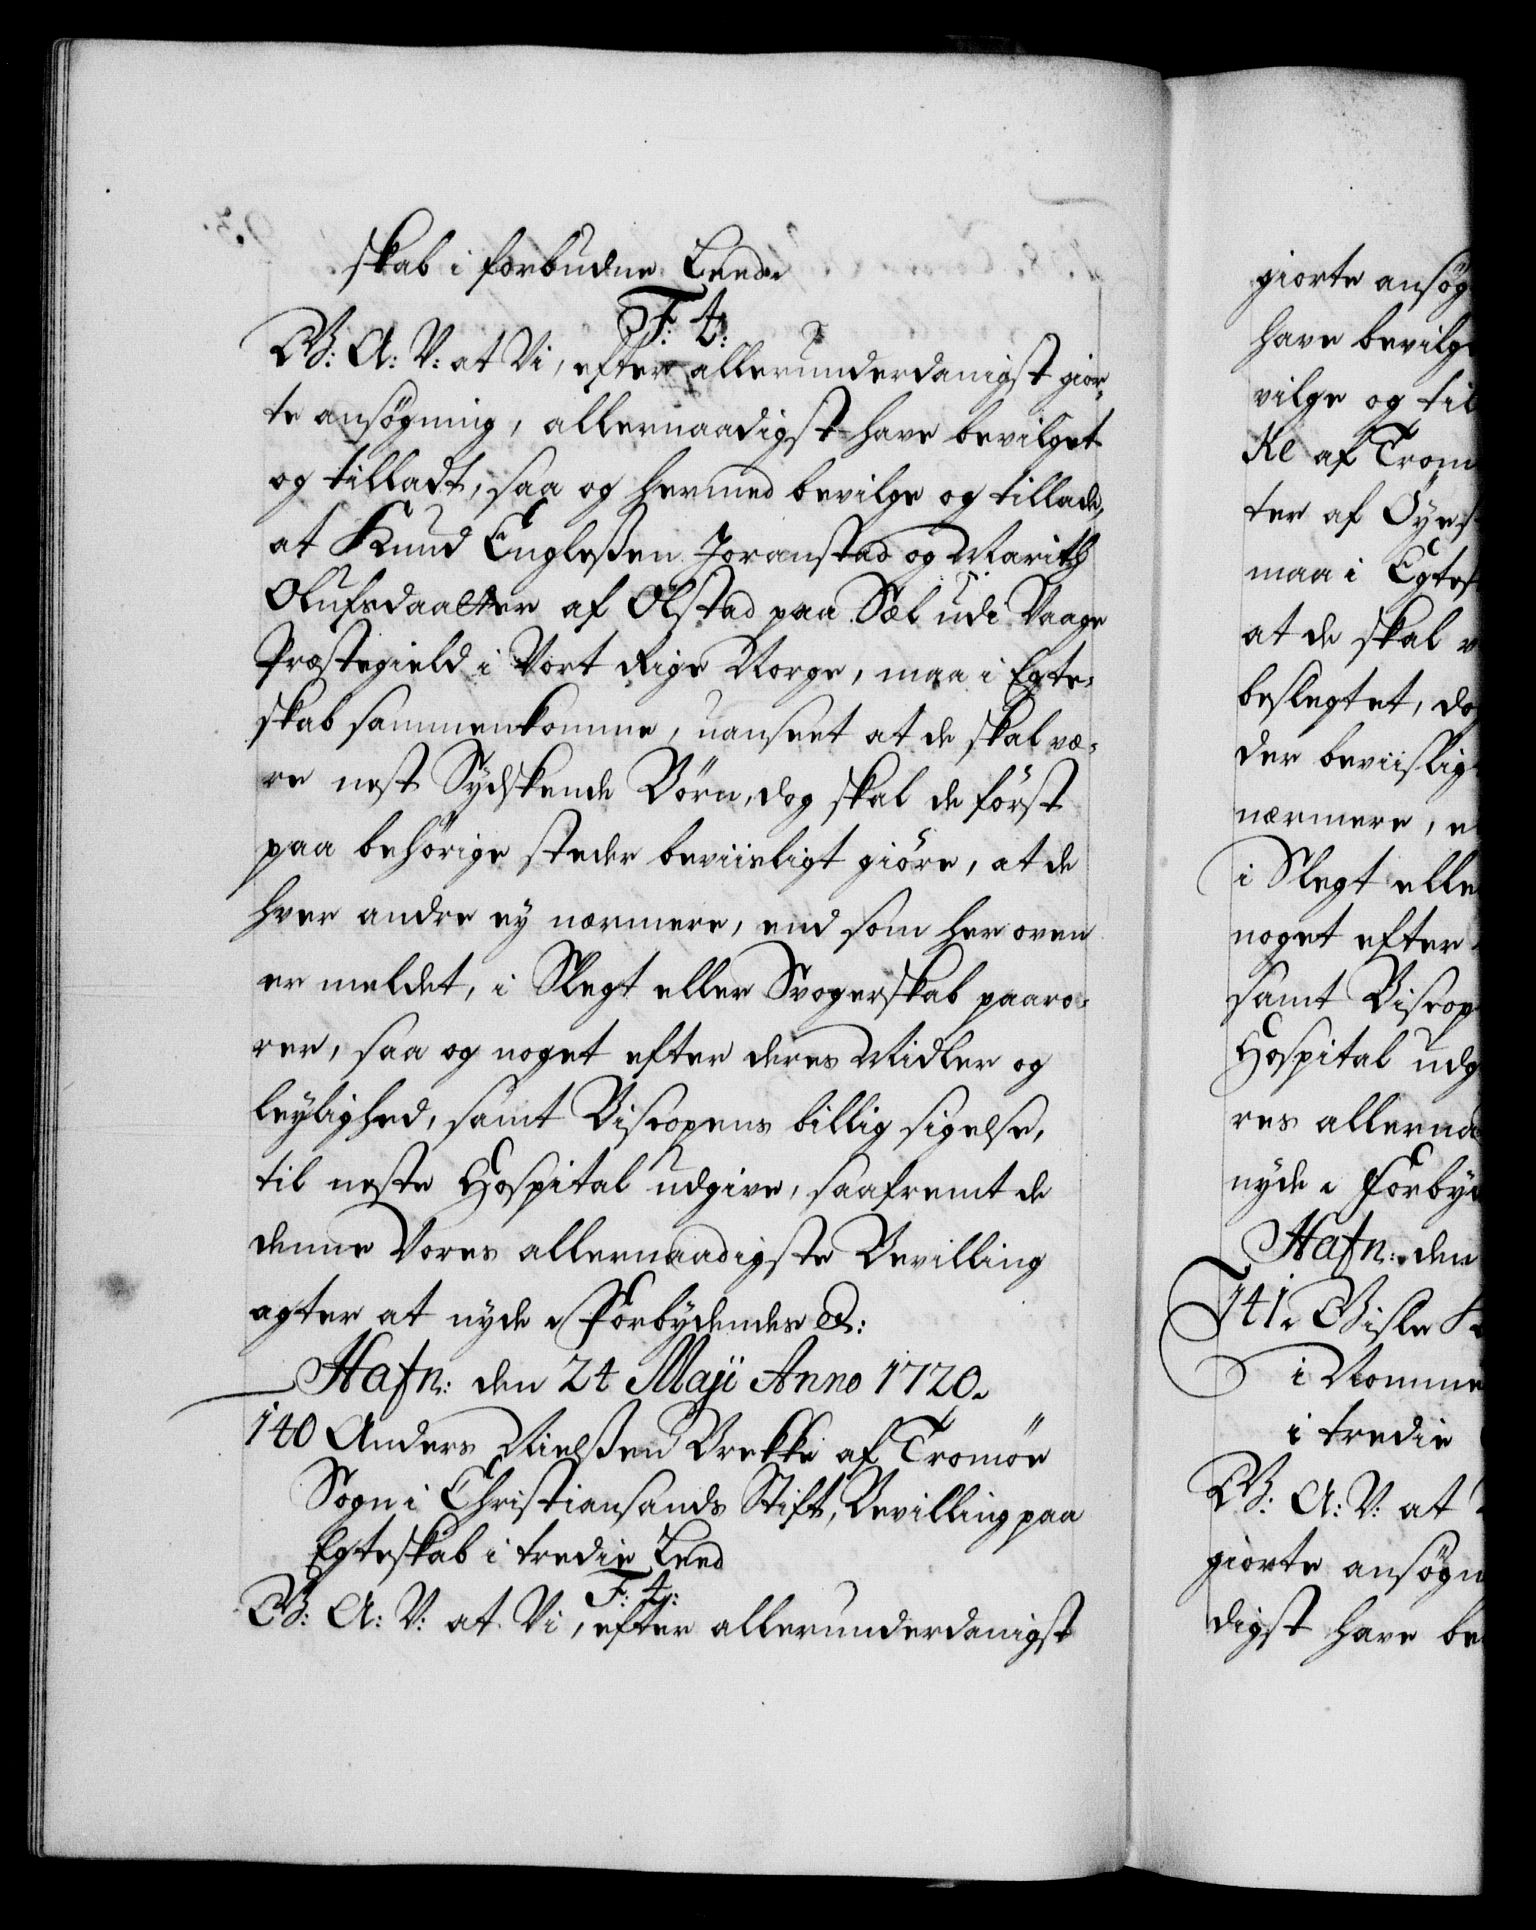 skab i forbudne Leed.
F: 4:
G: A: V: at Vi, efter allerunderdanigst gior-
te ansøgning, allernaadigst have bevilget
og tilladt, saa og hermed bevilge og tillade,
at Knud Englessen Joranstad og Marith
Olufsdaatter af Olstad paa Sæl udi Vaage
Præstegield i Vort Rige Norge, maa i Egte-
skab sammenkomme, uanseet at de skal væ-
re nest Sydskende Børn, dog skal de först
paa behörige steder beviisligt giöre, at de
hver andre ey nærmere, end som her oven
er meldet, i Slegt eller Svogerskab paarö-
rer, saa og noget efter deres Midler og
leylighed, samt Biscopens billig sigelse,
til neste Hospital udgive, saafremt de
denne Vores allernaadigste Bevilling
agter at nyde. Forbydendes &:
Hafn: den 24 Maji Anno 1720.
140 Anders Nielssen Brekke af Tromöe
Sogn i Christiansands Stift, Bevilling paa
Egteskab i tredie Leed
F: 4:
G: A: V: at Vi, efter allerunderdanigst
giorte ansøg
have bevilg
vilge og til
ke af Trom
ter af Öyes
maa i Egtes
at de skal v
beslegtet, dog
der beviislig
nærmere, e
i Slegt elle
noget efter
samt Biscop
Hospital udg
res allerna
nyde. Forbyd
Hafn: den
141. Gisle K
i Nomme
i tredie
G: A: V: at
giorte ansøgn
digst have be